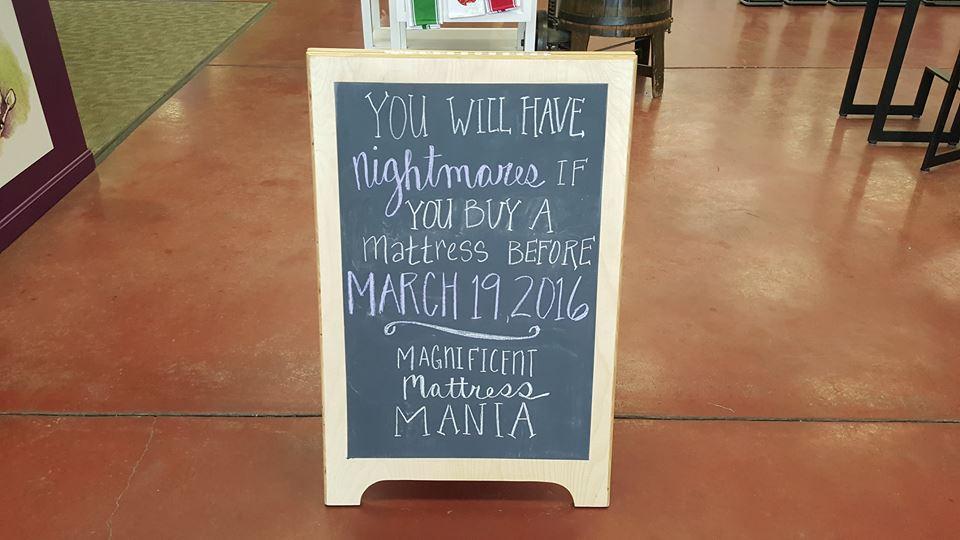 YOU WILL HAVE
nightmares IF
YOU BUY A
mattress BEFORE
MARCH 19, 2016
MAGNIFICENT
Mattress
MANIA